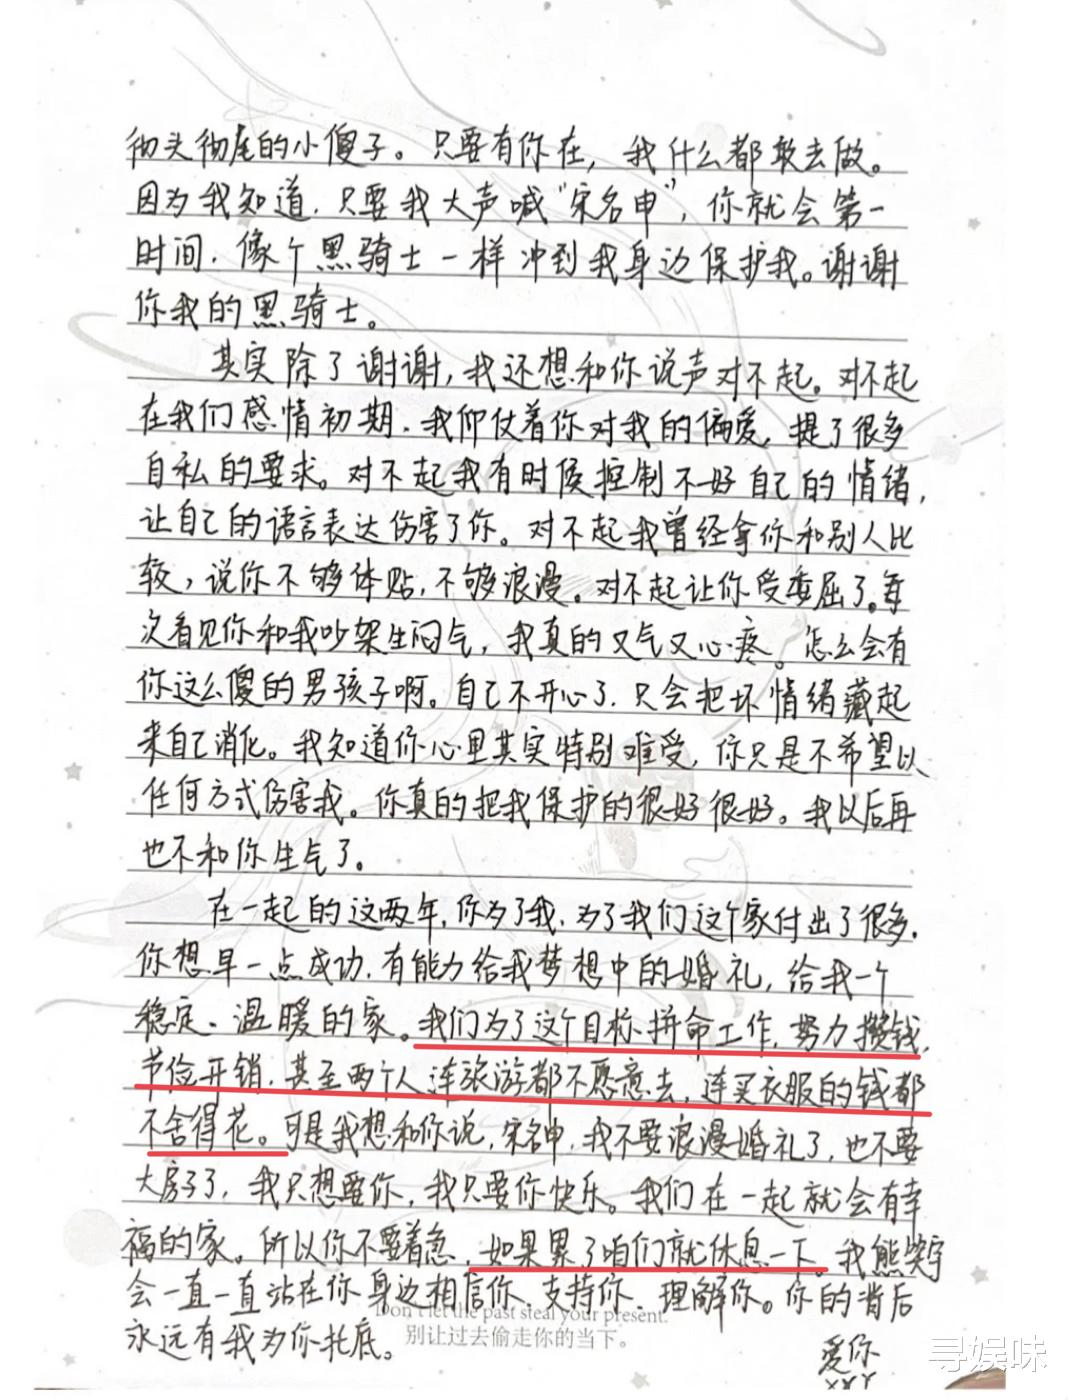 彻头彻尾的小傻子。只要有你在，我什么都敢去做。
因为我知道，只要我大声喊“宋名申”，你就会第一
时间，像个黑骑士一样冲到我身边保护我。谢谢
你我的黑骑士。
其实除了谢谢，我还想和你说声对不起。对不起
在我们感情初期，我仰仗着你对我的偏爱，提了很多
自私的要求。对不起我有时候控制不好自己的情绪，
让自己的语言表达伤害了你。对不起我曾经拿你和别人比
较，说你不够体贴，不够浪漫。对不起让你受委屈了。每
次看见你和我吵架生闷气，我真的又气又心疼。怎么会有
你这么傻的男孩子啊。自己不开心了，只会把坏情绪藏起
来自己消化。我知道你心里其实特别难受，你只是不希望以
任何方式伤害我。你真的把我保护的很好很好。我以后再
也不和你生气了。
在一起的这两年，你为了我，为了我们这个家付出了很多。
你想早一点成功，有能力给我梦想中的婚礼，给我一个
稳定、温暖的家。我们为了这个目标拼命工作，努力攒钱，
节俭开销，甚至两个人连旅游都不愿意去，连买衣服的钱都
不舍得花。可是我想和你说，宋名申，我不要浪漫婚礼了，也不要
大房子了，我只想要你，我只要你快乐。我们在一起就会有幸
福的家。所以你不要着急，如果累了咱们就休息一下。我熊
会一直一直站在你身边相信你、支持你、理解你。你的背后
Don't let the past steal your present.
别让过去偷走你的当下。
永远有我为你托底。
爱你
寻娱味